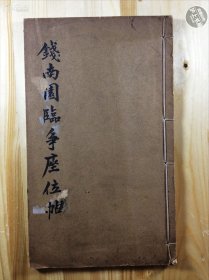 錢南園臨爭座位帖